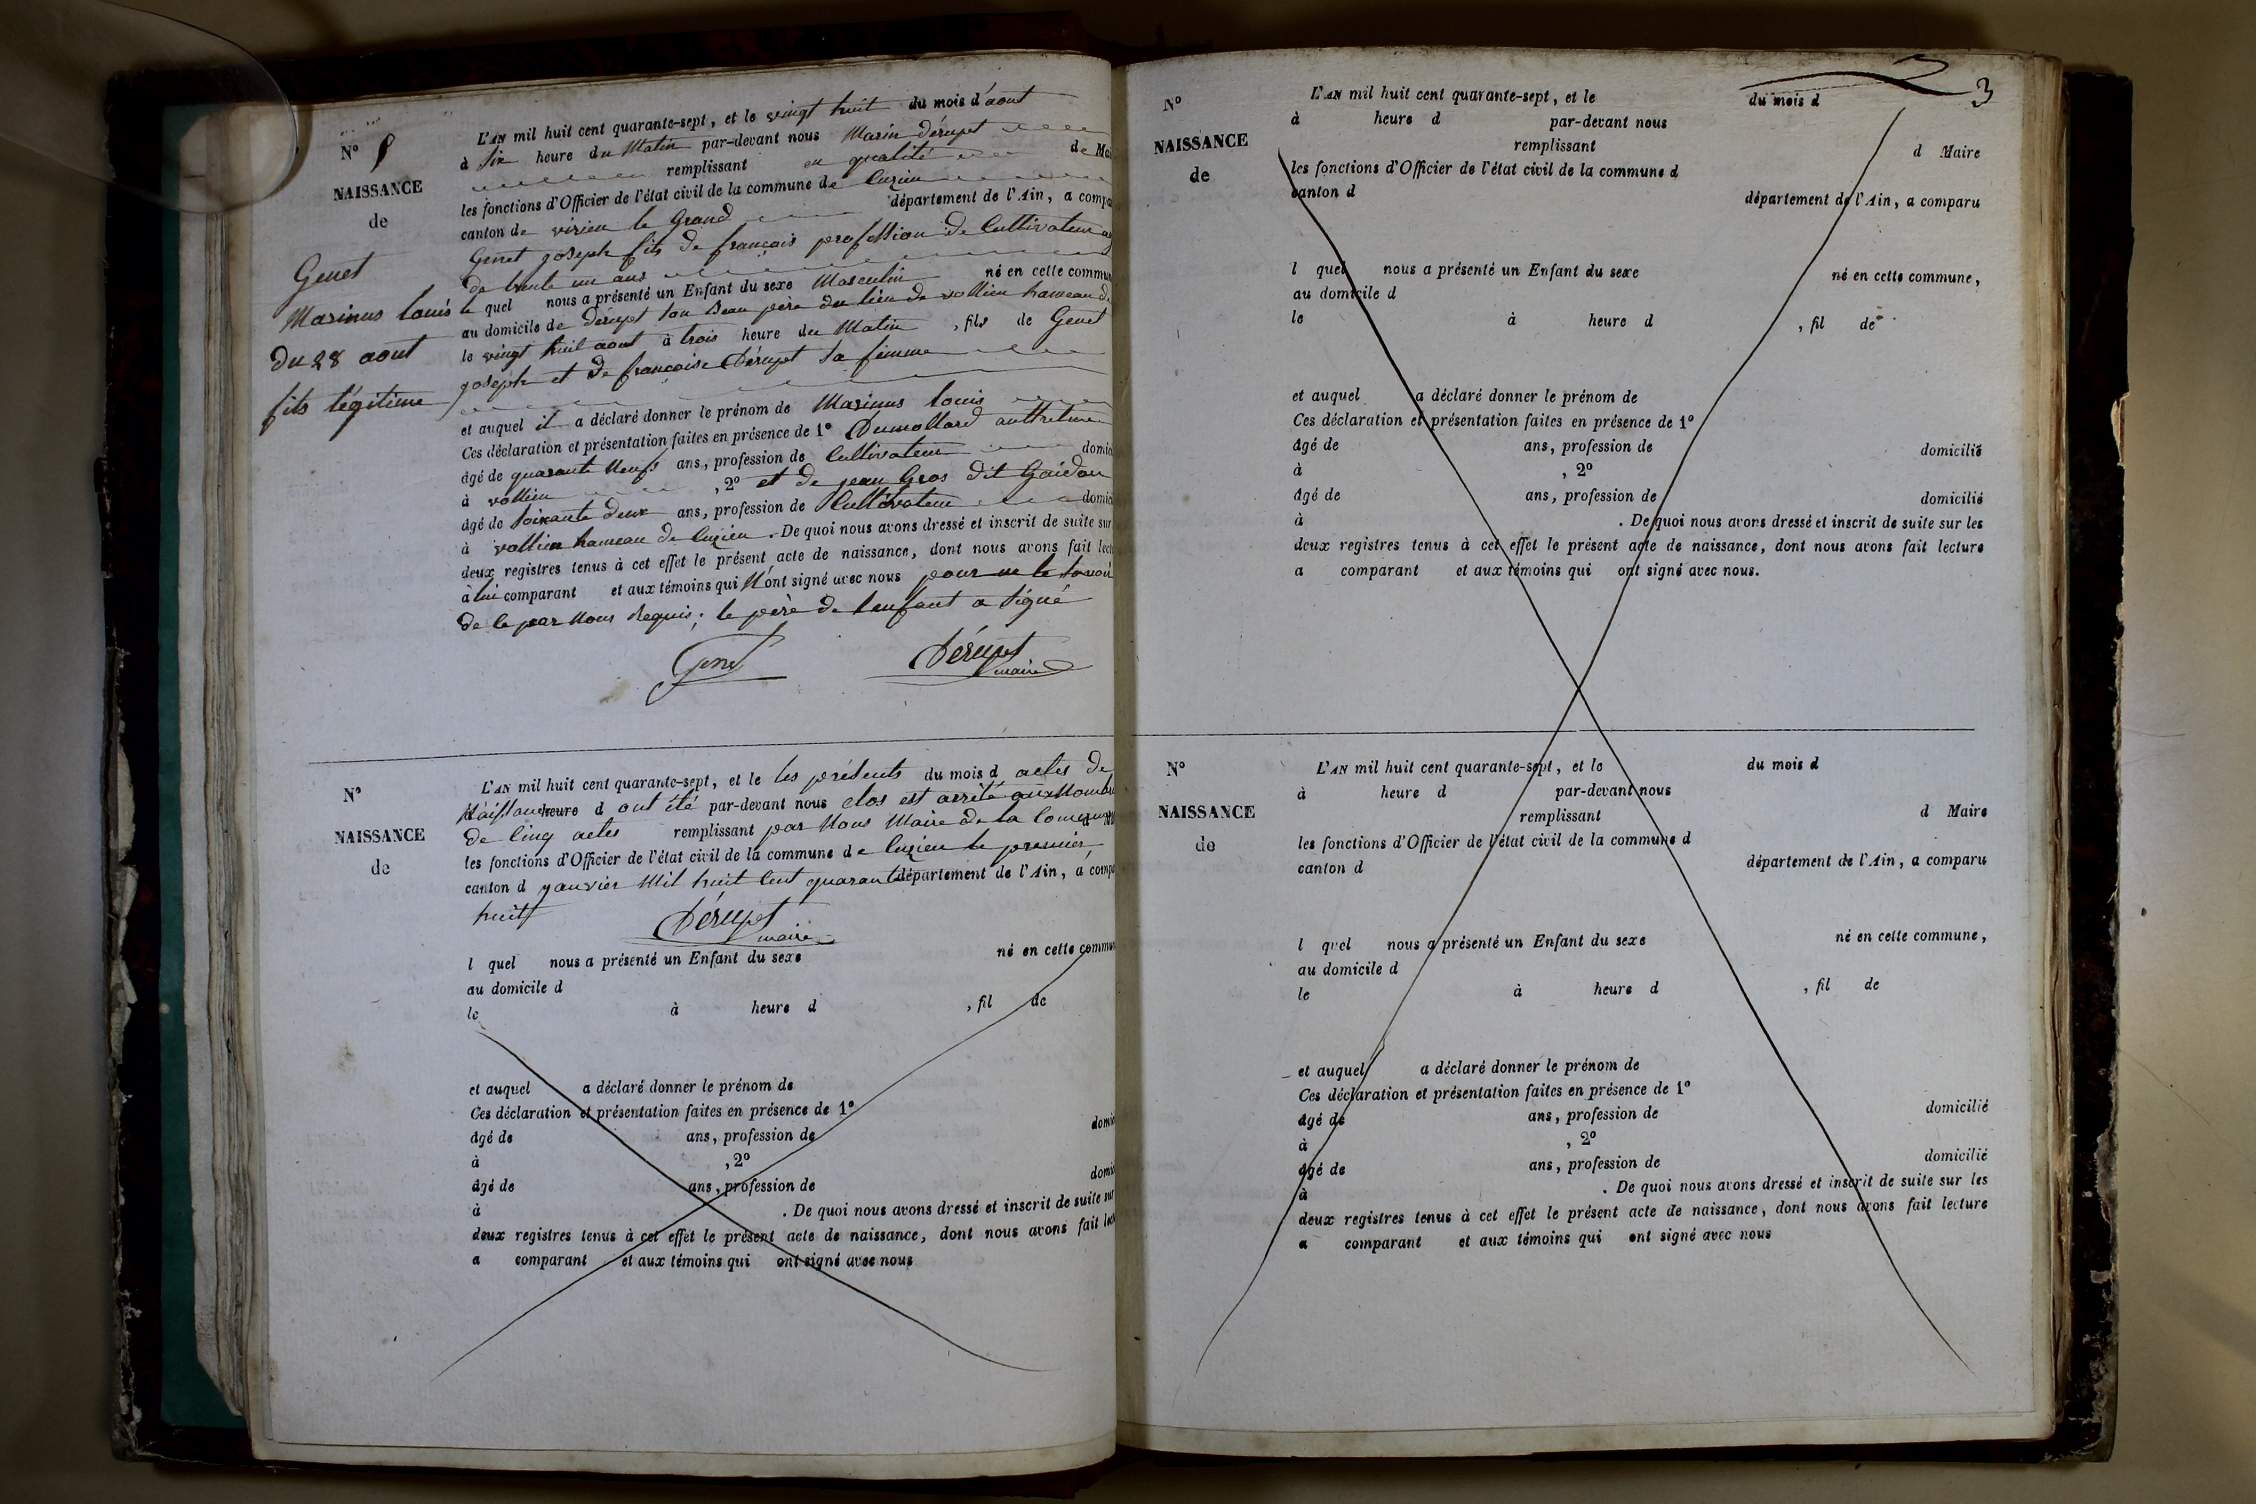 N° 5
NAISSANCE
de
Genet
Marinus louis
du 28 aout
fils légitime
L'AN mil huit cent quarante-sept, et le vingt huit du mois d'aout
à six heure du Matin par-devant nous Marin dérupet
remplissant en qualité de Mai
les fonctions d'Officier de l'état civil de la commune de Cuzieu
canton de virieu le Grand département de l'Ain, a compa
Genet joseph fils de françois profession de Cultivateur
de trente un ans
le quel nous a présenté un Enfant du sexe Masculin né en cette commun
au domicile de dérupet son Beau père du lieu de vollien hameau de
le vingt huit aout à trois heure du Matin , fils de Genet
joseph et de françoise Dérupet sa femme
et auquel il a déclaré donner le prénom de Marinus louis
Ces déclaration et présentation faites en présence de 1° Dumollard anthelme
âgé de quarante Neufs ans, profession de Cultivateur domic
à vollien , 2° et de jean Gros dit Gaidon
âgé de soixante deux ans, profession de Cultivateur domic
à vollien hameau de Cuzieu . De quoi nous avons dressé et inscrit de suite sur
deux registres tenus à cet effet le présent acte de naissance, dont nous avons fait lect
à lui comparant et aux témoins qui N'ont signé avec nous pour ne le savoir
de ce par Nous Requis; le père de l'enfant a signé
Genet Dérupet
maire
N°
NAISSANCE
de
L'AN mil huit cent quarante-sept, et le les présents du mois d actes de
Naissance heure d ont été par-devant nous clos est arrité aux Nombre
de Cinq actes remplissant par Nous Maire de la Commune
les fonctions d'Officier de l'état civil de la commune de Cuzieu le premier
canton d janvier Mil huit Cent quarante département de l'Ain, a compa
huit Dérupet
maire
l quel nous a présenté un Enfant du sexe né en cette commun
au domicile d
le à heure d , fil de
et auquel a déclaré donner le prénom de
Ces déclaration et présentation faites en présence de 1°
âgé de ans, profession de domic
à , 2°
âgé de ans, profession de domic
à . De quoi nous avons dressé et inscrit de suite sur
deux registres tenus à cet effet le présent acte de naissance, dont nous avons fait lect
a comparant et aux témoins qui ont signé avec nous
3
N°
NAISSANCE
de
L'AN mil huit cent quarante-sept, et le du mois d
à heure d par-devant nous
remplissant d Maire
les fonctions d'Officier de l'état civil de la commune d
canton d département de l'Ain, a comparu
l quel nous a présenté un Enfant du sexe né en cette commune,
au domicile d
le à heure d , fil de
et auquel a déclaré donner le prénom de
Ces déclaration et présentation faites en présence de 1°
âgé de ans, profession de domicilié
à , 2°
âgé de ans, profession de domicilié
à . De quoi nous avons dressé et inscrit de suite sur les
deux registres tenus à cet effet le présent acte de naissance, dont nous avons fait lecture
a comparant et aux témoins qui ont signé avec nous.
N°
NAISSANCE
de
L'AN mil huit cent quarante-sept, et le du mois d
à heure d par-devant nous
remplissant d Maire
les fonctions d'Officier de l'état civil de la commune d
canton d département de l'Ain, a comparu
l quel nous a présenté un Enfant du sexe né en cette commune,
au domicile d
le à heure d , fil de
et auquel a déclaré donner le prénom de
Ces déclaration et présentation faites en présence de 1°
âgé de ans, profession de domicilié
à , 2°
âgé de ans, profession de domicilié
à . De quoi nous avons dressé et inscrit de suite sur les
deux registres tenus à cet effet le présent acte de naissance, dont nous avons fait lecture
a comparant et aux témoins qui ont signé avec nous